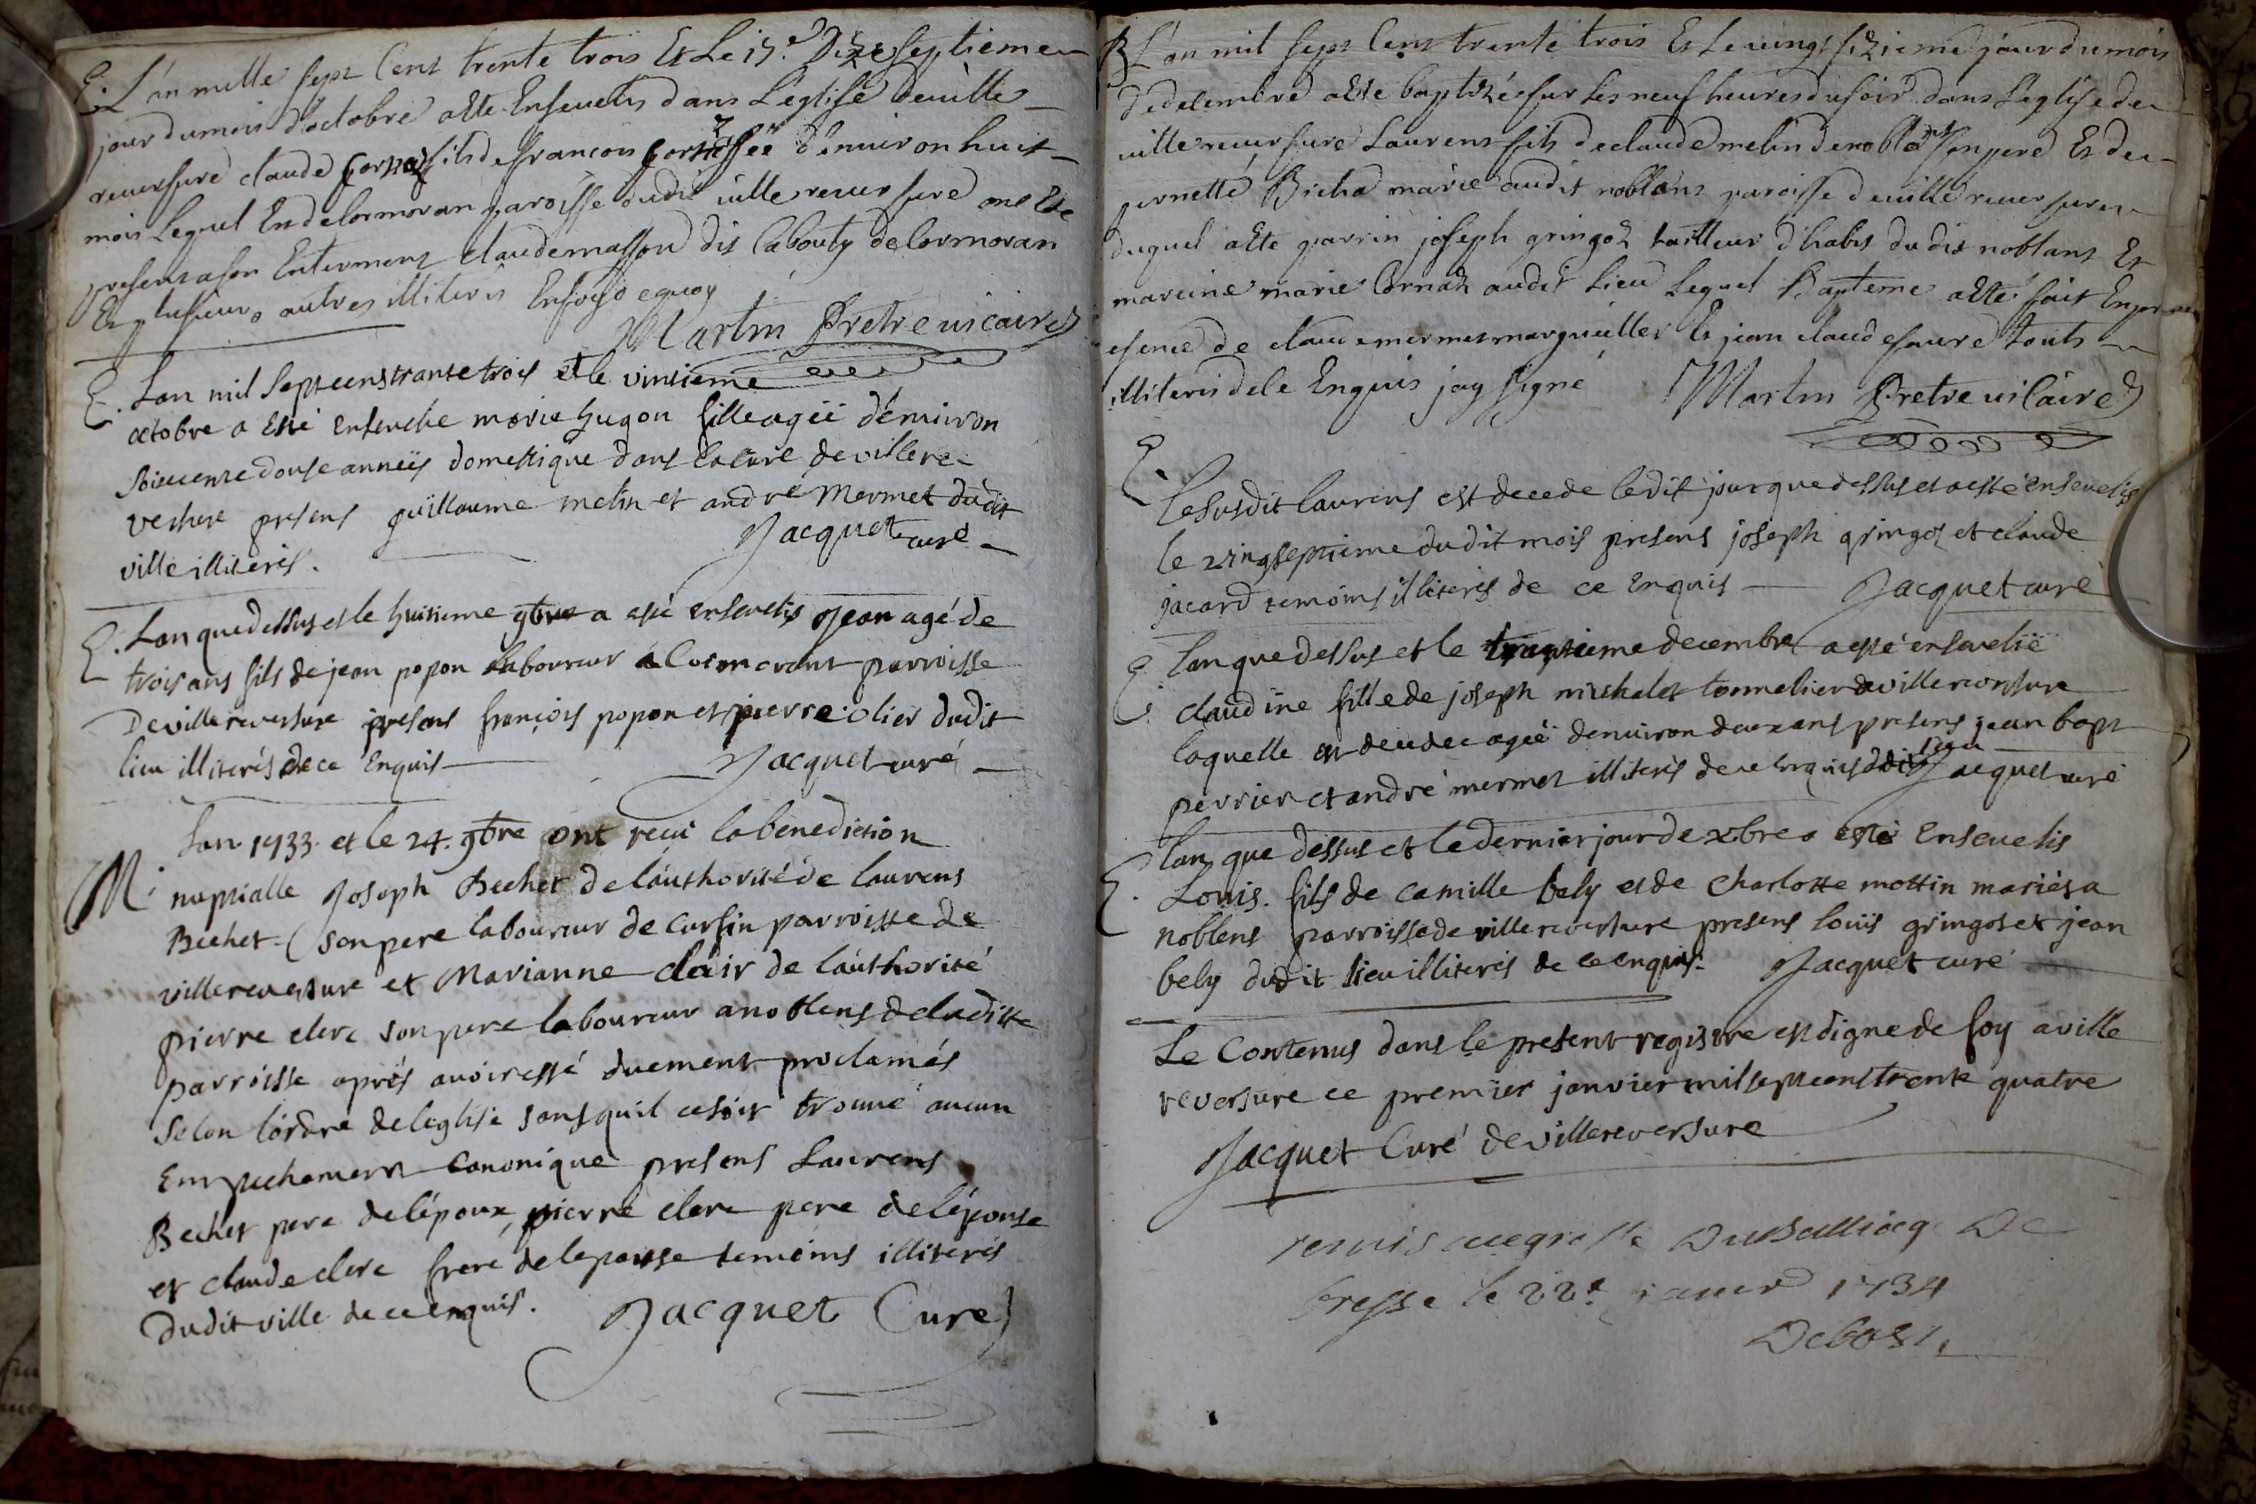 E. L'an mille sept Cens trente trois Et Le 17e. Dixe septieme
jour du mois d'octobre a Eté Ensevelis dans L'église de ville
reversure claude fils de francois d'environ huit
mois Lequel Est de Cormoran paroisse dudit ville reversure ont Eté
present a son Enterment claude masson dit Labouty de Cormoran
Et plusieurs autres illiteris
Martin Pretre vicaire
E. Lan mil Sept cens trante trois et le vintieme
octobre a esté ensevelie marie hugon fille agëe d'environ
soiccente douse annëes domestique dans la cure de villere-
versure presens guillaume melin et andré Mermet dudit
ville illiterés. Jacquet curé
E. Lan que dessus et le huitieme 9bre a esté ensevelis Jean agé de
trois ans fils de jean popon laboureur a Cormorant parroisse
De villereversure presens françois popon et pierre olier dudit
lieu illiterés de ce Enquis Jacquet curé
Lan 1733. et le 24. 9bre ont reçu la benediction
M. nuptialle Joseph Bechet de l'authorité de laurens
Bechet son pere laboureur de Curfin parroisse de
villereversure et Marianne clair de l'authorité
pierre clerc son pere laboureur a noblens de laditte
parroisse aprés avoir esté duement proclamés
Selon l'ordre de leglise sans quil ce soit trouvé aucun
Empechement canonique presens Laurens
Bechet pere de l'époux, pierre clerc pere de l'épouse
et claude clerc frere de lepouse temoins illiterés
Dudit ville de ce enquis. Jacquet Curé
B L'an mil sept Cens trente trois Et Le vingt sizieme jour du mois
de decembre a Eté baptizée sur les neuf heures du soir dans L'eglise de
ville reversure Laurens fils de claude melin de noblans son pere Et de
pernette Bicha marie audit noblans paroisse de ville reversure
duquel a Eté parrin joseph gringoz tailleur d'habis dudit noblans Et
mareine marie Cornaz audit Lieu Lequel Bapteme a Eté fait En pre
sence de claude mermet marguillier Et jean claude favre touts
illiteris de le Enquis jay signé Martin Pretre vicaire
E. Le susdit laurens est decede ledit jour que dessus et a esté ensevelis
le vingseptieme dudit mois presens joseph gringoz et claude
jacard temoins illiterés de ce Enquis Jacquet curé
E. lan que dessus et le trantieme decembre a esté ensevelië
claudine fille de joseph michalet tonnelier a villereversure
laquelle est decedee agëe denviron deux ans presens jean bapt
perrier et andré mermet illiterés de ce enquis Jacquet curé
E. lan que dessus et le dernier jour de xbre a esté Ensevelis
Louis. fils de camille bely et de charlotte mottin mariés a
noblens parroisse de villereversure presens louis gringoz et jean
bely dudit lieu illiterés de ce enquis. Jacquet curé
Le Contenus dans le present registre est digne de foy a ville
reversure ce premier janvier mil sept cens trente quatre
Jacquet Curé de villereversure
remis au greffe Du Balliage De
bresse le 22e janvr 1734